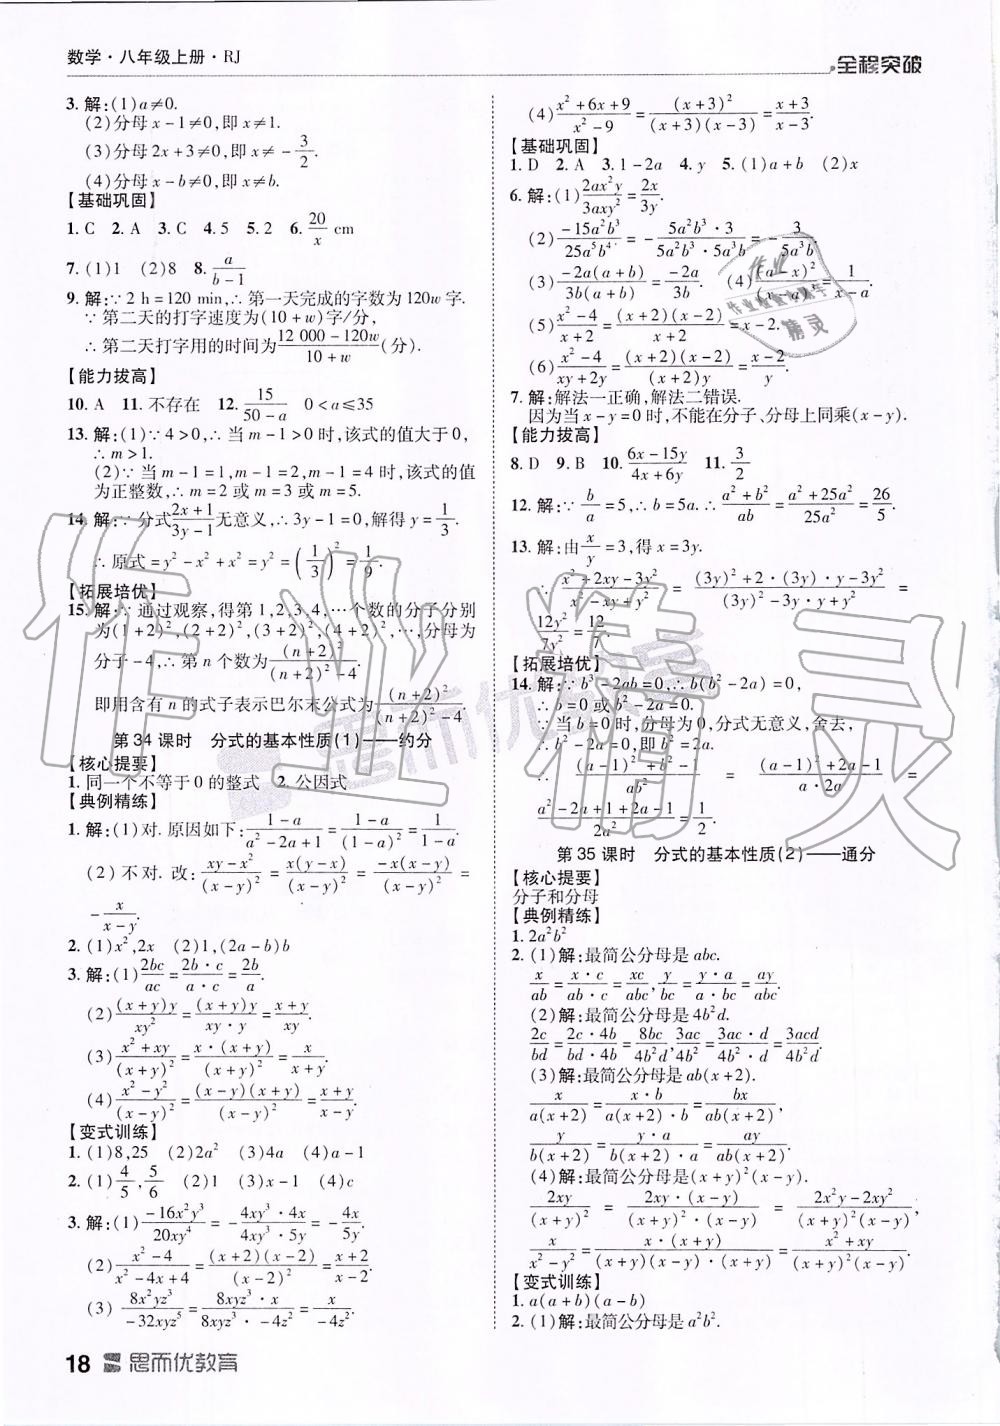 数学·八年级上册·RJ
全程突破
3. 解:(1)a≠0.
(2)分母 x-1≠0,即 x≠1.
(3)分母 2x+3≠0,即 x≠-3/2.
(4)分母 x-b≠0,即 x≠b.
【基础巩固】
1. C 2. A 3. C 4. 5 5. 2 6. 20/x cm
7. (1)1 (2)8 8. a/(b-1)
9. 解:∵ 2 h=120 min,∴ 第一天完成的字数为 120w 字.
∵ 第二天的打字速度为(10+w)字/分,
∴ 第二天打字用的时间为(12 000-120w)/(10+w)(分).
【能力拔高】
10. A 11. 不存在 12. 15/(50-a) 0<a≤35
13. 解:(1)∵ 4>0,∴ 当 m-1>0 时,该式的值大于 0,
∴ m>1.
(2)∵ 当 m-1=1,m-1=2,m-1=4 时,该式的值
为正整数,∴ m=2 或 m=3 或 m=5.
14. 解:∵ 分式(2x+1)/(3y-1)无意义,∴ 3y-1=0,解得 y=1/3.
∴ 原式=y²-x²+x²=y²=(1/3)²=1/9.
【拓展培优】
15. 解:∵ 通过观察,得第 1,2,3,4,…个数的分子分别
为(1+2)²,(2+2)²,(3+2)²,(4+2)²,…,分母为
分子-4,∴ 第 n 个数为(n+2)²/((n+2)²-4).
即用含有 n 的式子表示巴尔末公式为(n+2)²/((n+2)²-4).
第 34 课时 分式的基本性质(1)——约分
【核心提要】
1. 同一个不等于 0 的整式 2. 公因式
【典例精练】
1. 解:(1)对. 原因如下:(1-a)/(a²-2a+1)=(1-a)/(1-a)²=1/(1-a).
(2) 不对. 改:(xy-x²)/(x-y)²=x(y-x)/(x-y)²=-x(x-y)/(x-y)²=
-x/(x-y).
2. (1)x²,2x (2)1,(2a-b)b
3. 解:(1)2bc/ac=(2b·c)/(a·c)=2b/a.
(2)(x+y)y/xy²=(x+y)y/(xy·y)=(x+y)/xy.
(3)(x²+xy)/(x+y)²=x·(x+y)/(x+y)²=x/(x+y).
(4)(x²-y²)/(x-y)²=(x-y)(x+y)/(x-y)²=(x+y)/(x-y).
【变式训练】
1. (1)8,25 (2)2a² (3)4a (4)a-1
2. (1)4/5,5/6 (2)1 (3)x-1 (4)c
3. 解:(1)-16x²y³/20xy⁴=-(4xy³·4x)/(4xy³·5y)=-4x/5y.
(2)(x²-4)/(x²-4x+4)=(x+2)(x-2)/(x-2)²=(x+2)/(x-2).
(3) 8x²yz³/-32xyz⁵=(8xyz³·x)/(8xyz³·-4z²)=-x/4z².
18 思而优教育
(4)(x²+6x+9)/(x²-9)=(x+3)²/(x+3)(x-3)=(x+3)/(x-3).
【基础巩固】
1. D 2. A 3. 1-2a 4. y 5. (1)a+b (2)x
6. 解:(1)2ax²y/3axy²=2x/3y.
(2)-15a²b³/25a⁵b⁴=-(5a²b³·3)/(5a²b³·5a³b)=-3/5a³b.
(3)-2a(a+b)/3b(a+b)=-2a/3b. (4)(a-x)²/(x-a)³=1/(x-a).
(5)(x²-4)/(x+2)=(x+2)(x-2)/(x+2)=x-2.
(6)(x²-4)/(xy+2y)=(x+2)(x-2)/(x+2)y=(x-2)/y.
7. 解:解法一正确,解法二错误.
因为当 x-y=0 时,不能在分子、分母上同乘(x-y).
【能力拔高】
8. D 9. B 10. (6x-15y)/(4x+6y) 11. 3/2
12. 解:∵ b/a=5,∴ b=5a.∴ (a²+b²)/ab=(a²+25a²)/5a²=26/5.
13. 解:由x/y=3,得 x=3y.
∵ (x²+2xy-3y²)/(x²-xy+y²)=((3y)²+2·(3y)·y-3y²)/((3y)²-3y·y+y²)=
12y²/7y²=12/7.
【拓展培优】
14. 解:∵ b³-2ab=0,∴ b(b²-2a)=0,
∴ b=0 或 b²-2a=0.
∵ 当 b=0 时,分母为 0,分式无意义,舍去,
∴ b²-2a=0,即 b²=2a.
∵ ((a-1)²+b²-1)/ab²=((a-1)²+2a-1)/(a·2a)=
(a²-2a+1+2a-1)/2a²=1/2.
第 35 课时 分式的基本性质(2)——通分
【核心提要】
分子和分母
【典例精练】
1. 2a²b²
2. (1)解:最简公分母是 abc.
x/ab=(x·c)/(ab·c)=xc/abc,y/bc=(y·a)/(bc·a)=ay/abc.
(2)解:最简公分母是 4b²d.
2c/bd=(2c·4b)/(bd·4b)=8bc/4b²d,3ac/4b²=(3ac·d)/(4b²·d)=3acd/4b²d.
(3)解:最简公分母是 ab(x+2).
x/a(x+2)=(x·b)/(a(x+2)·b)=bx/ab(x+2),
y/b(x+2)=(y·a)/(b(x+2)·a)=ay/ab(x+2).
(4)解:最简公分母是(x+y)²(x-y).
2xy/(x+y)²=2xy·(x-y)/(x+y)²·(x-y)=(2x²y-2xy²)/(x+y)²(x-y),
x/(x²-y²)=x·(x+y)/(x+y)(x-y)·(x+y)=(x²+xy)/(x+y)²(x-y).
【变式训练】
1. a(a+b)(a-b)
2. (1)解:最简公分母是 a²b².
作业精灵